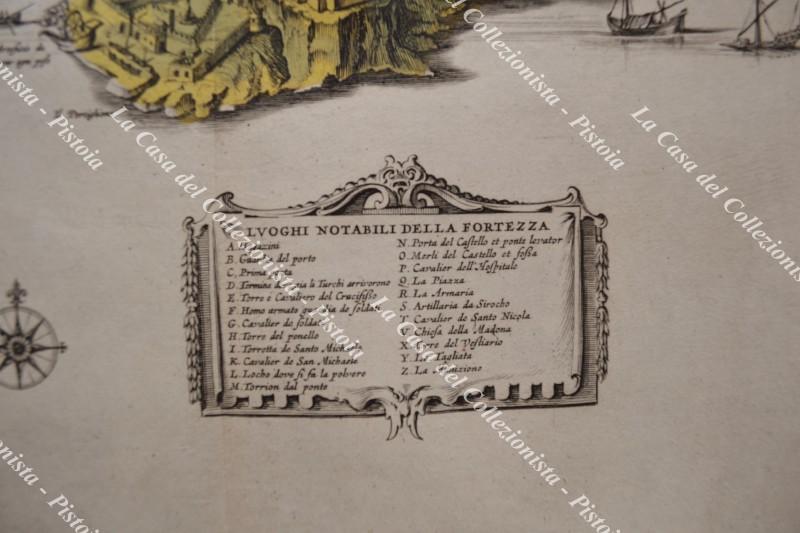 LVOGHI NOTABILI DELLA FORTEZZA
A. Magazini
B. Guardia del porto
C. Prima porta
D. Termine di doia li Turchi arrivorono
E. Torre e Cavaliero del Crucifisso
F. Homo armato guardia de soldati
G. Cavalier de soldati
H. Torre del penello
I. Torretta de Santo Michaele
K. Cavalier de San Michaele
L. Locho dove si fa la polvere
M. Torrion dal ponte
N. Porta del Castello et ponte levator
O. Merli del Castello et fossa
P. Cavalier dell'Hospitale
Q. La Piazza
R. La Armaria
S. Artillaria da Sirocho
T. Cavalier de Santo Nicola
V. Chiesa della Madona
X. Torre del Vestiario
Y. La Tagliata
Z. La Munizione
La Casa del Collezionista - Pistoia
La Casa del Collezionista - Pistoia
La Casa del Collezionista - Pistoia
La Casa del Collezionista - Pistoia
Collezionista - Pistoia
Collezionista - Pistoia